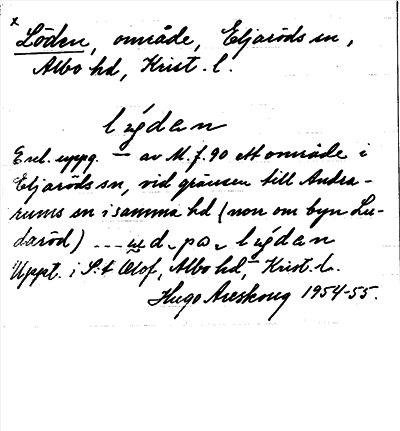 x
Löden, område, Eljaröds sn,
Albo hd, Krist. l.
lýdan
Enl. uppg. — av M. f. 90 ett område i
Eljaröds sn, vid gränsen till Andra-
rums sn i samma hd (norr om byn Lu-
daröd) --- d. på. lýdan
Uppt. i S:t Olof, Albo hd, Krist. l.
Hugo Areskoug 1954-55.